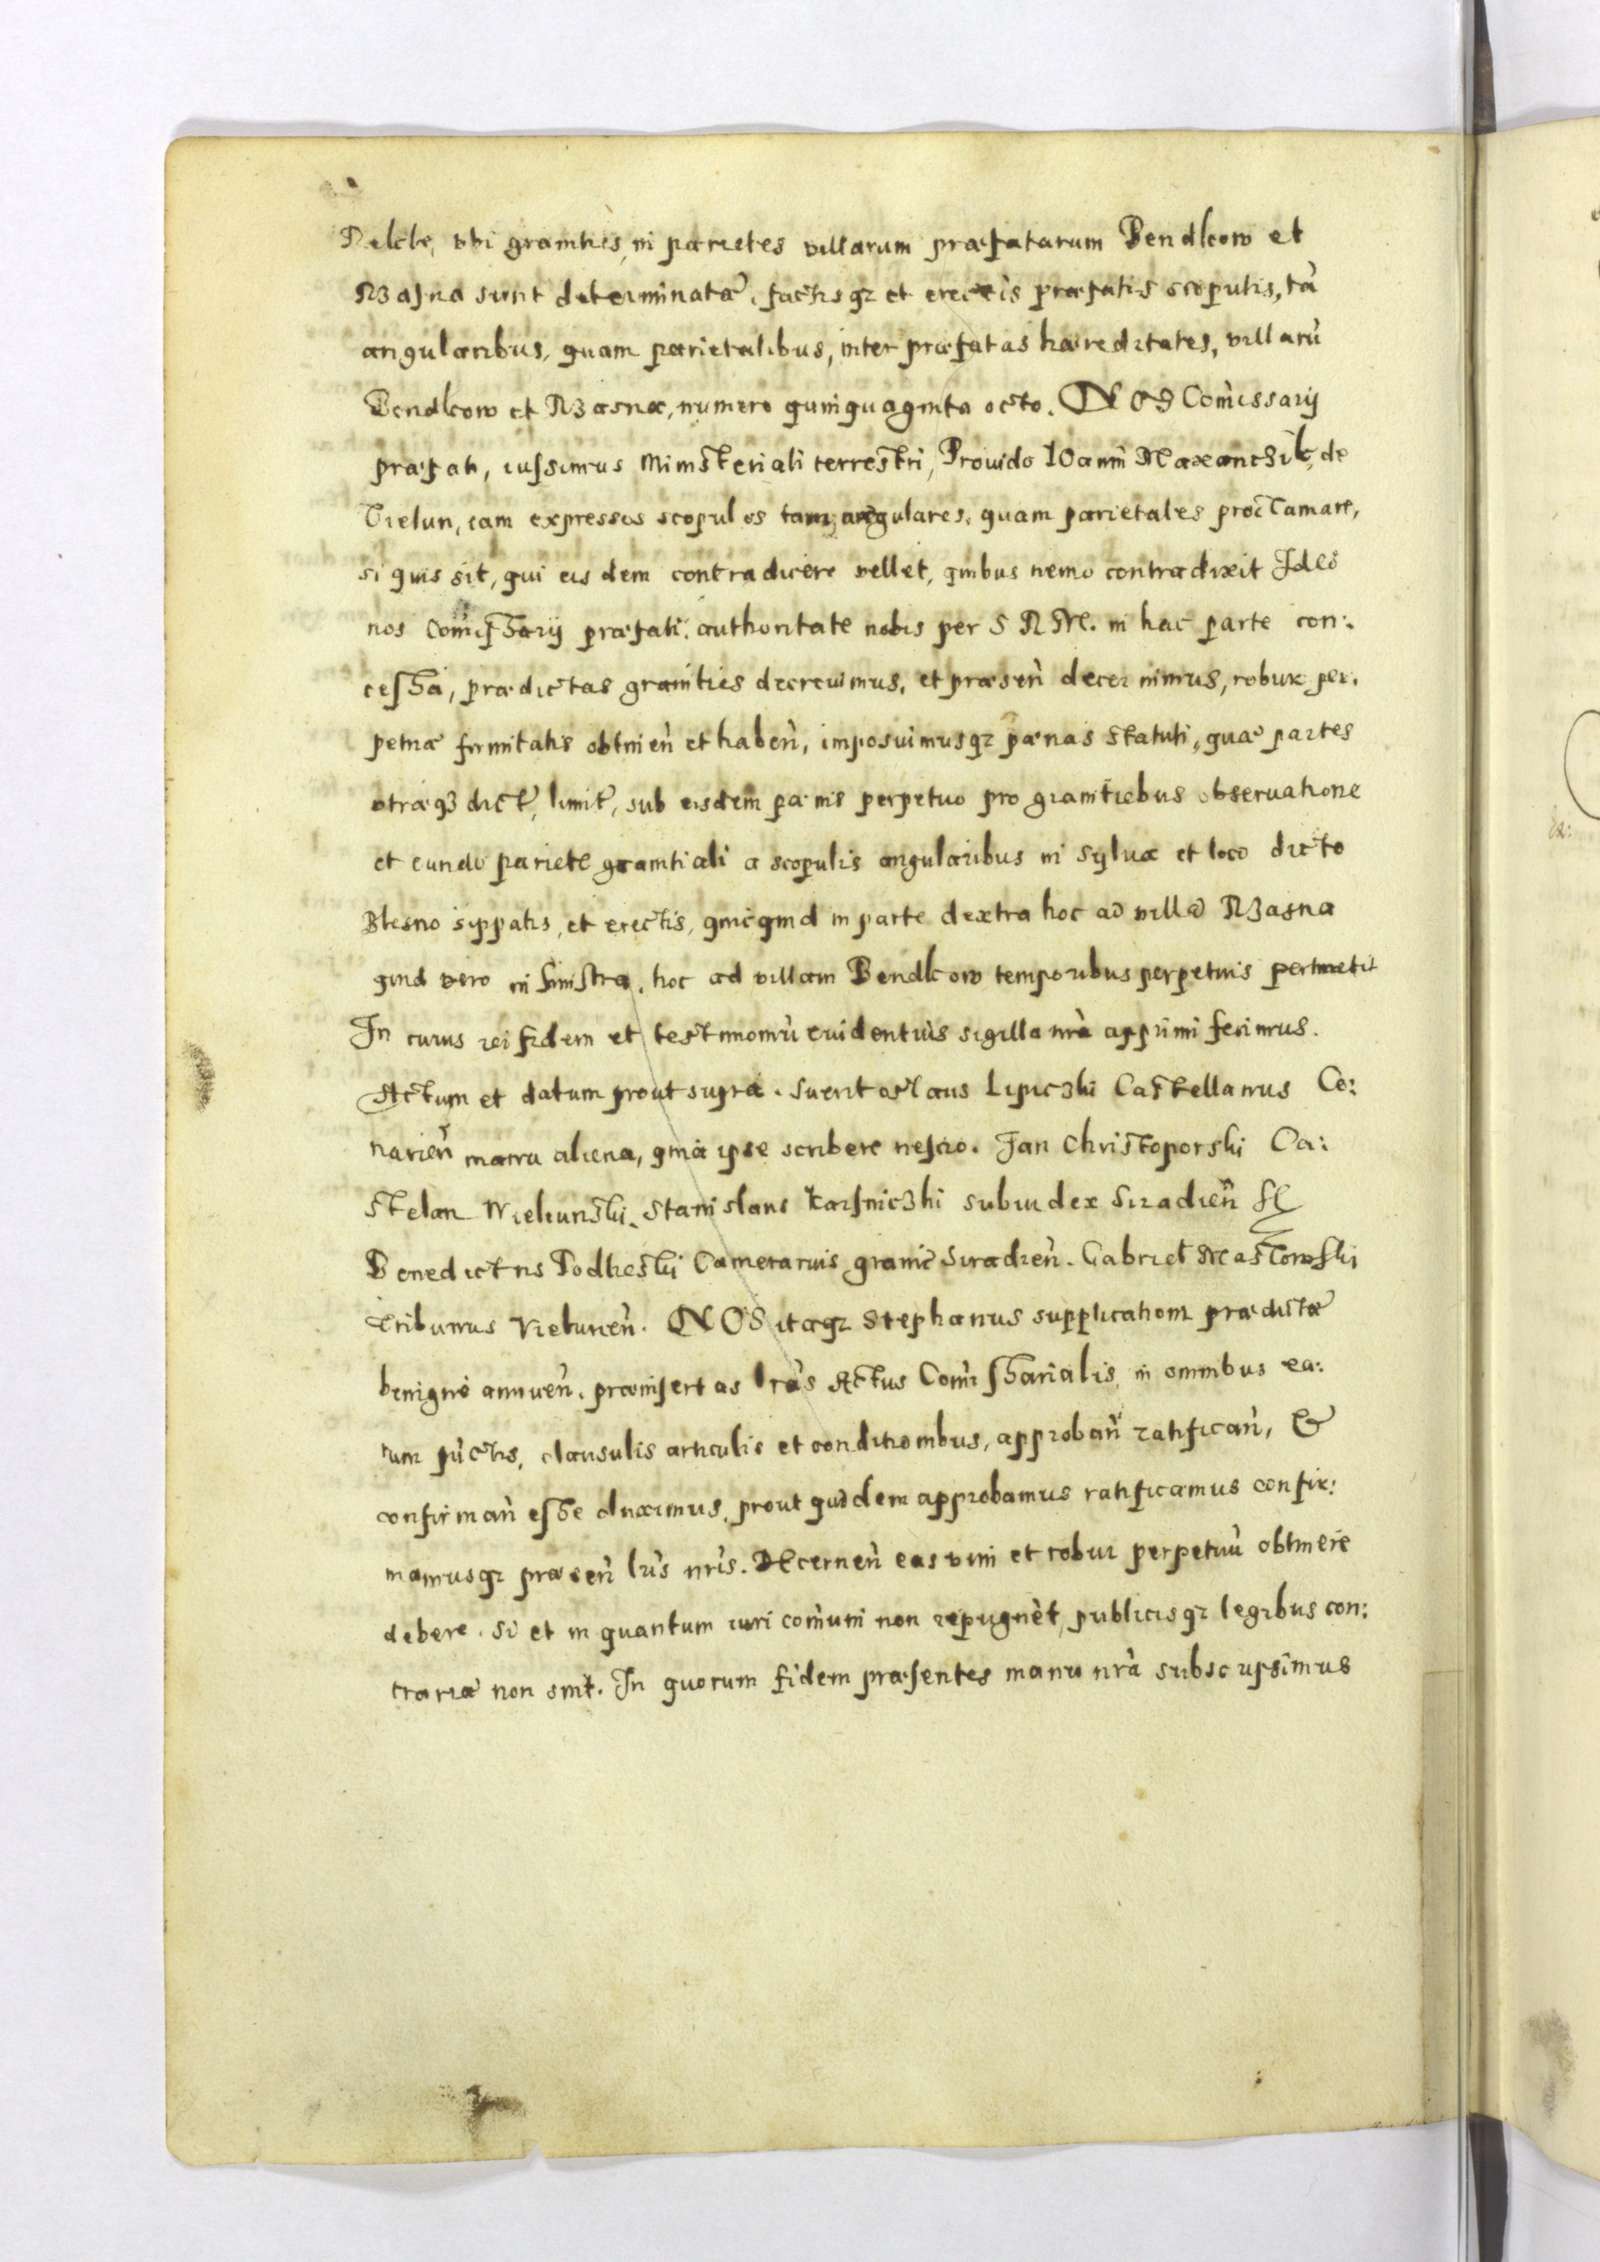 ubi granities, in parietes villarum præfatarum Bendkow et
Rząsna sunt determinatæ, factisqz et erectis præfatis scopulis, tã
angularibus, quam parietalibus, inter præfatas hæreditates, villarũ
Bendkow et Rząsna, numero quinquaginta octo. NOS Com̃issarij
præfati, iussimus Ministeriali terrestri, Prouido IOanni de
Vielun, iam expressos scopulos tam angulares, quam parietales proclamare,
si quis sit, qui eisdem contradicere vellet, quibus nemo contradixit Ideo
nos Com̃issarij præfati, authoritate nobis per S R M. in hac parte con:
cessa, prædictas granities decreuimus, et præseñ decernimus, robur per:
petuæ firmitatis obtineñ et habeñ, imposuimusqz pænas statuti, quæ partes
utræqz dict, limit, sub eisdem pænis perpetuo pro granitiebus obseruatione
et eundo pariete granitiali a scopulis angularibus in Sylua et loco dicto
sippatis, et erectis, quicquid in parte dextra hoc ad villã Rząsna
quid vero in sinistra, hoc ad villam Bendkow temporibus perpetuis pertinebit
In cuius rei fidem et testimoniũ euidentius sigilla nrã apprimi fecimus.
Actum et datum prout supra. Suentoslaus Lipiczki Castellanus Co:
narieñ manu aliena, quia ipse scribere nescio. Jan Christoporski Ca:
stelan Wielunski. Stanislaus Karsniczki subiudex Siradieñ
Benedictus Podleski Camerarius granic̃ Siradieñ. Gabriel Maslowski
tribunus Vieluneñ. NOS itaqz Stephanus supplicationi prædictæ
benigne annueñ, præinsertas lrãs Actus Com̃issarialis, in omnibus ea:
rum pũctis, clausulis articulis et conditionibus, approbañ ratificañ, &
confirmañ esse duximus, prout quidem approbamus ratificamus confir:
mamusqz præseñ lrĩs nrĩs. Decerneñ eas vim et robur perpetuũ obtinere
debere. Si et in quantum iuri com̃uni non repugnẽt, publicisqz legibus con:
trariæ non sint. In quorum fidem præsentes manu nrã subscripsimus